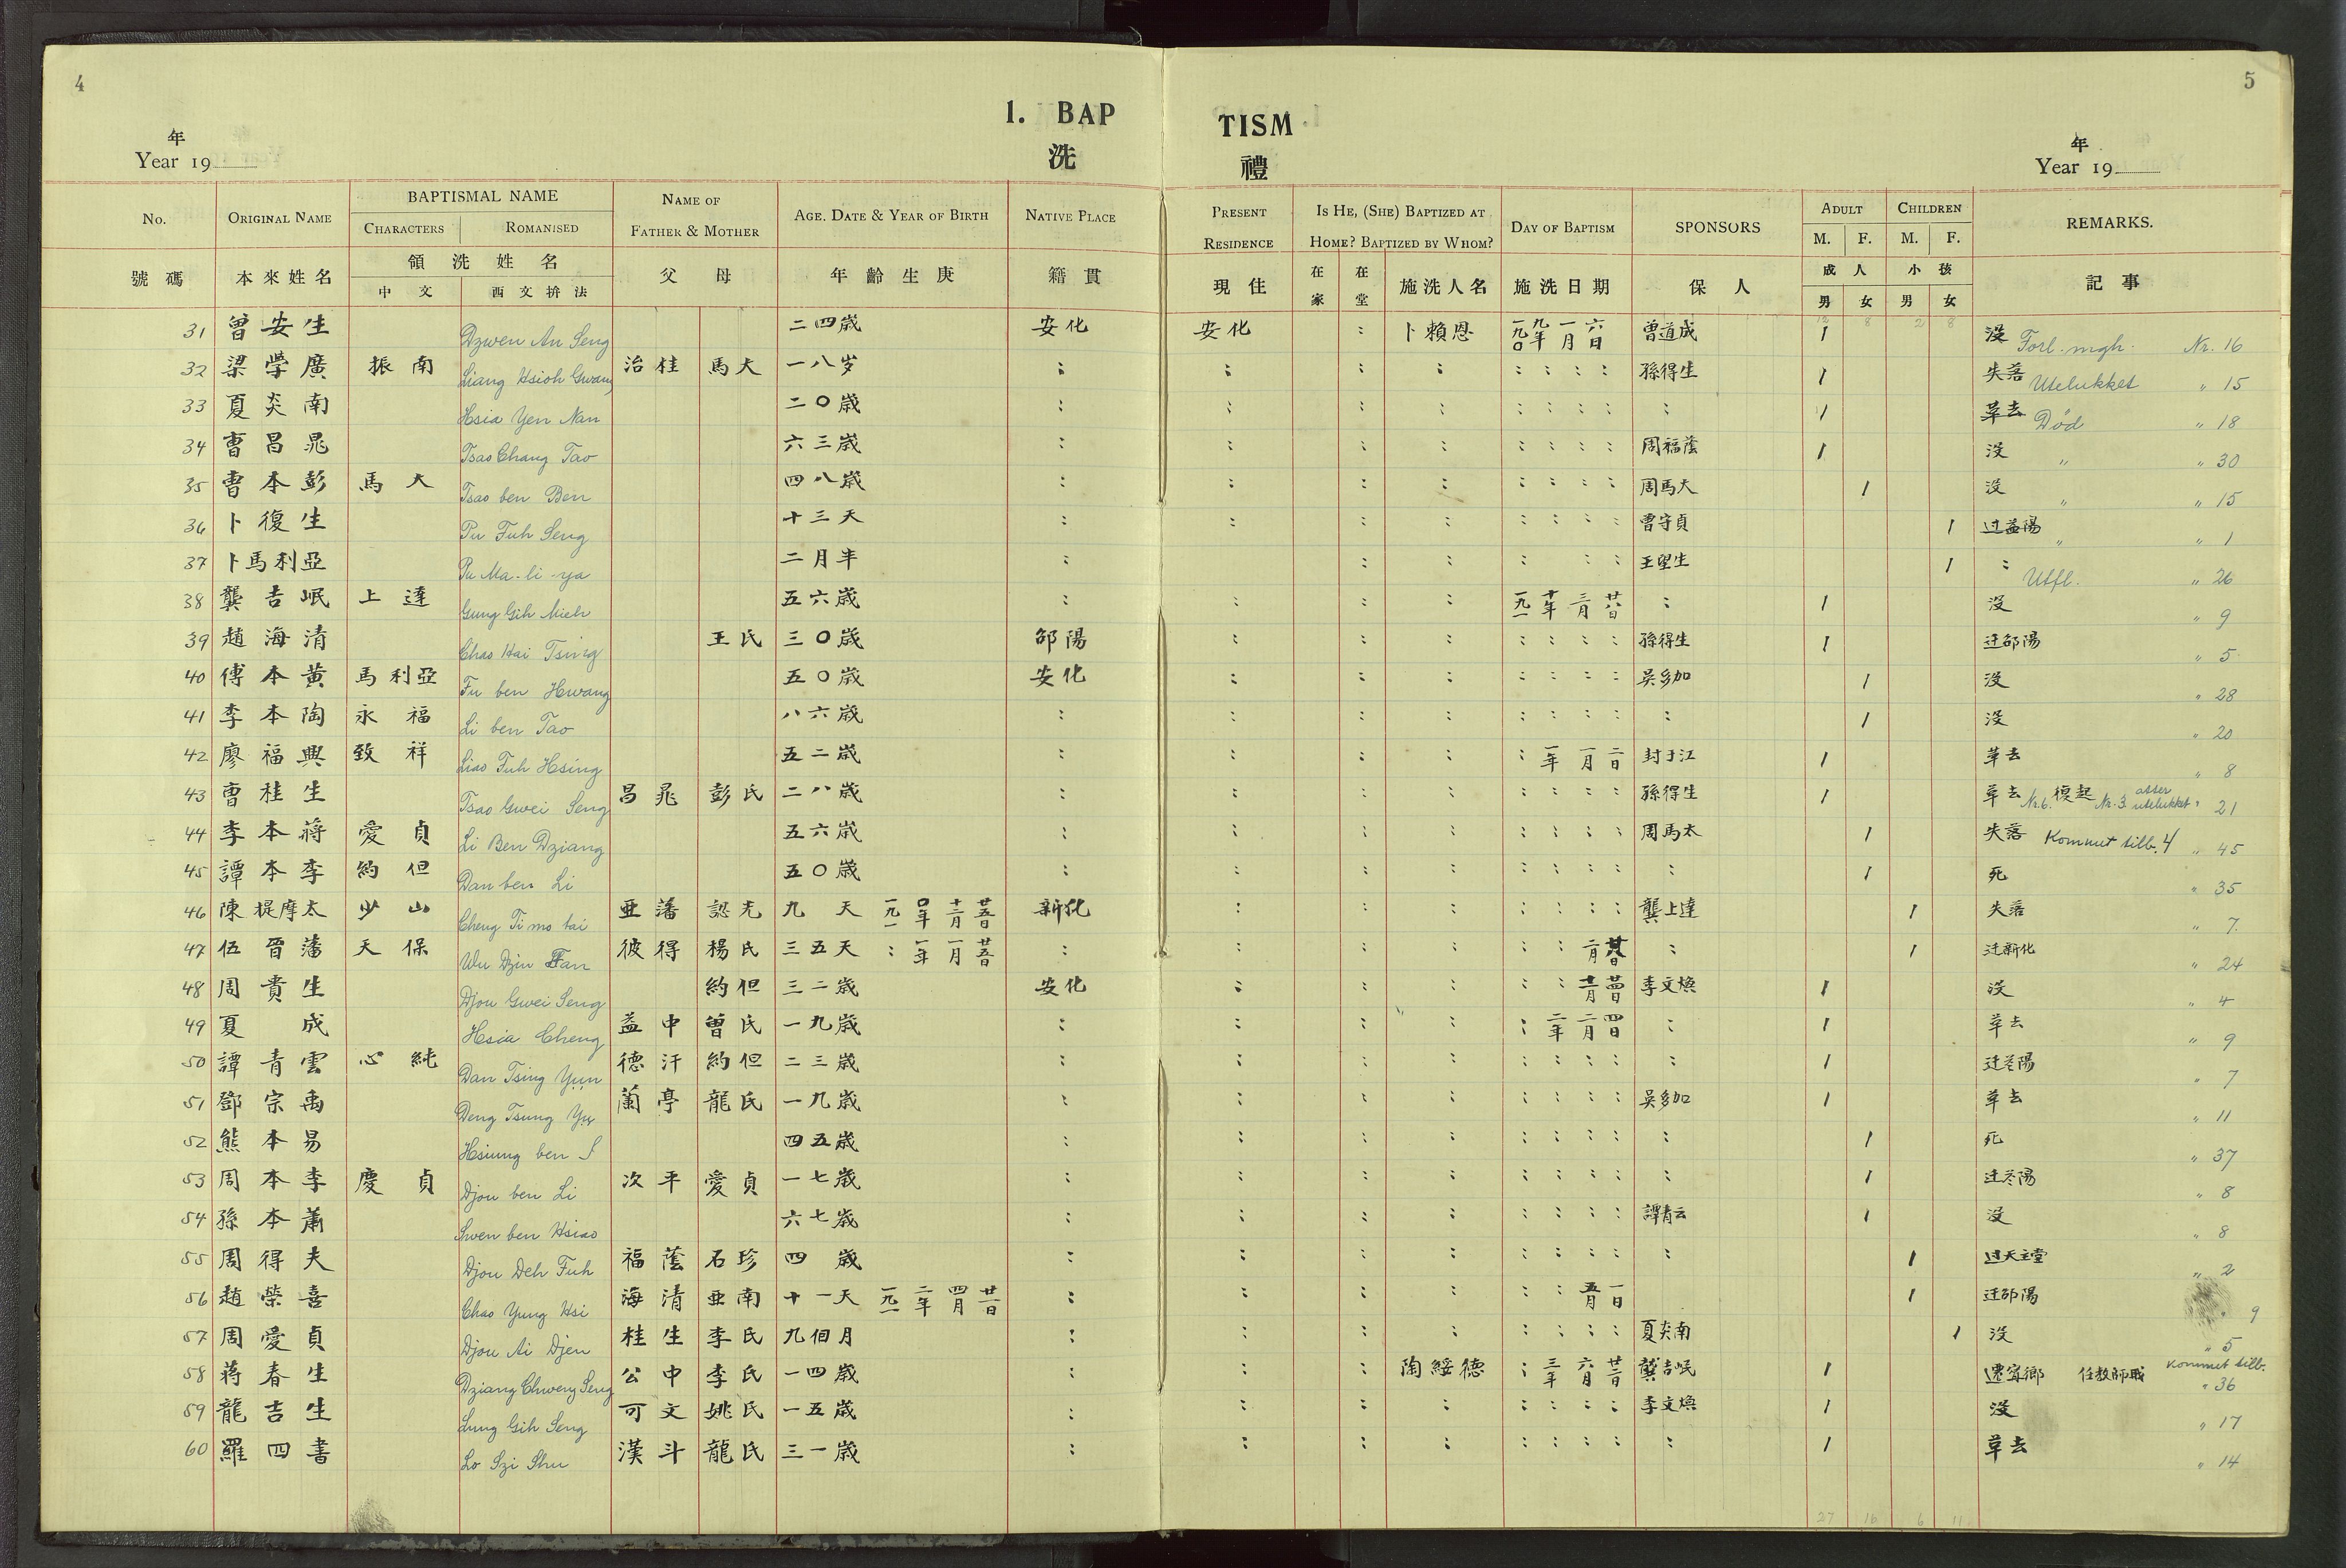 4
5
1. BAP
TISM
洗
禮
年
Year 19
年
Year 19
No. ORIGINAL NAME BAPTISMAL NAME CHARACTERS ROMANISED NAME OF FATHER & MOTHER AGE. DATE & YEAR OF BIRTH NATIVE PLACE PRESENT RESIDENCE IS HE, (SHE) BAPTIZED AT HOME? BAPTIZED BY WHOM? DAY OF BAPTISM SPONSORS ADULT M. F. CHILDREN M. F. REMARKS.
號碼 本來姓名 領洗姓名 中文 西文拚法 父母 年齡生庚 籍貫 現住 在家 在堂 施洗人名 施洗日期 保人 成人 男 女 小孩 男 女 記事
13 8 2 8
31 曾安生 Dzwen An Seng 二四歲 安化 安化 : 卜賴恩 一九一〇年一月六日 曾道成 1 沒 Forl. mgh. Nr. 16
32 梁學廣 振南 Liang Hsioh Gwang 治桂 馬大 一八岁 : : : : : : : : 孫得生 1 失落 Utelukket " 15
33 夏炎南 Hsia Yen Nan 二〇歲 : : : : : : : : : 1 革去 Död " 18
34 曹昌晁 Tsao Chang Tao 六三歲 : : : : : : : : 周福蔭 1 沒 " " 30
35 曹本彭 馬大 Tsao ben Ben 四八歲 : : : : : : : : 周馬大 1 沒 " " 15
36 卜復生 Pu Fuh Seng 十三天 : : : : : : : : 曹守貞 1 过益陽 " " 1
37 卜馬利亞 Pu Ma-li-ya 二月半 : : : : : : 王望生 1 : Utfl. " 26
38 龔吉岷 上達 Gung Gih Mieh 五六歲 : : : : 三月廿八日 : 1 沒 " 9
39 趙海清 Chao Hai Tsing 王氏 三〇歲 邵陽 : : : : : : : 孫得生 1 迁邵陽 " 5
40 傅本黄 馬利亞 Fu ben Hwang 五〇歲 安化 : : : : : : : 吳多加 1 沒 " 28
41 李本陶 永福 Li ben Tao 八六歲 : : : : : : : : : 1 沒 " 20
42 廖福興 致祥 Liao Fuh Hsing 五二歲 : : : : : 一年一月二日 封于江 1 革去 " 8
43 曹桂生 Tsao Gwei Seng 昌晁 彭氏 二八歲 : : : : : : : : 孫得生 1 革去 Nr. 6. 復起 Nr. 3 atter utelukket " 21
44 李本蔣 愛貞 Li Ben Dziang 五六歲 : : : : : : : : 周馬太 1 失落 Kommet tilb. 4 " 45
45 譚本李 約但 Dan ben Li 五〇歲 : : : : : : : : : 1 死 " 35
46 陳提摩太 少山 Cheng Ti mo tai 亜藩 九天 新化 : : : : : : : 龔上達 1 失落 " 7
47 伍晉藩 天保 Wu Dzin Fan 彼得 楊氏 三五天 : 一年一月廿五日 : : : : : : : 1 迁新化 " 24
48 周貴生 Djou Gwei Seng 約但 三二歲 安化 : : : : : 李文煥 1 沒 " 4
49 夏成 Hsia Cheng 益中 曾氏 一九歲 : : : : : 二年二月四日 : 1 革去 " 9
50 譚青雲 心純 Dan Tsing Yün 德汗 約但 二三歲 : : : : : : : : : 1 迁益陽 " 7
51 鄧宗禹 Deng Tsung Yü 蘭亭 龍氏 一九歲 : : : : : : : : 吳多加 1 革去 " 11
52 熊本易 Hsiung ben I 四五歲 : : : : : : : : : 1 死 " 37
53 周本李 慶貞 Djou ben Li 次平 愛貞 一七歲 : : : : : : : : : 1 迁益陽 " 8
54 孫本蕭 Swen ben Hsiao 六七歲 : : : : : : : : 譚青云 1 沒 " 8
55 周得夫 Djou Deh Fuh 福蔭 石珍 四歲 : : : : : : : : : 1 过天主堂 " 2
56 趙榮喜 Chao Yung Hsi 海清 亜南 十一天 : : : : : : 五月一日 1 迁邵陽 " 9
57 周愛貞 Djou Ai Djen 桂生 李氏 九個月 : : : : : : : : 夏炎南 1 沒 " 5
58 蔣春生 Dziang Chweng Seng 公中 李氏 一四歲 : : : 陶綏德 : 三年六月廿二日 龔吉岷 1 遷甯鄉 任教師職 Kommet tilb. " 36
59 龍吉生 Lung Gih Seng 可文 姚氏 一五歲 : : : : : : : : 李文煥 1 沒 " 17
60 羅四書 Lo Szi Shu 漢斗 龍氏 三一歲 : : : : : : : : : 1 革去 " 14
27 16 6 11